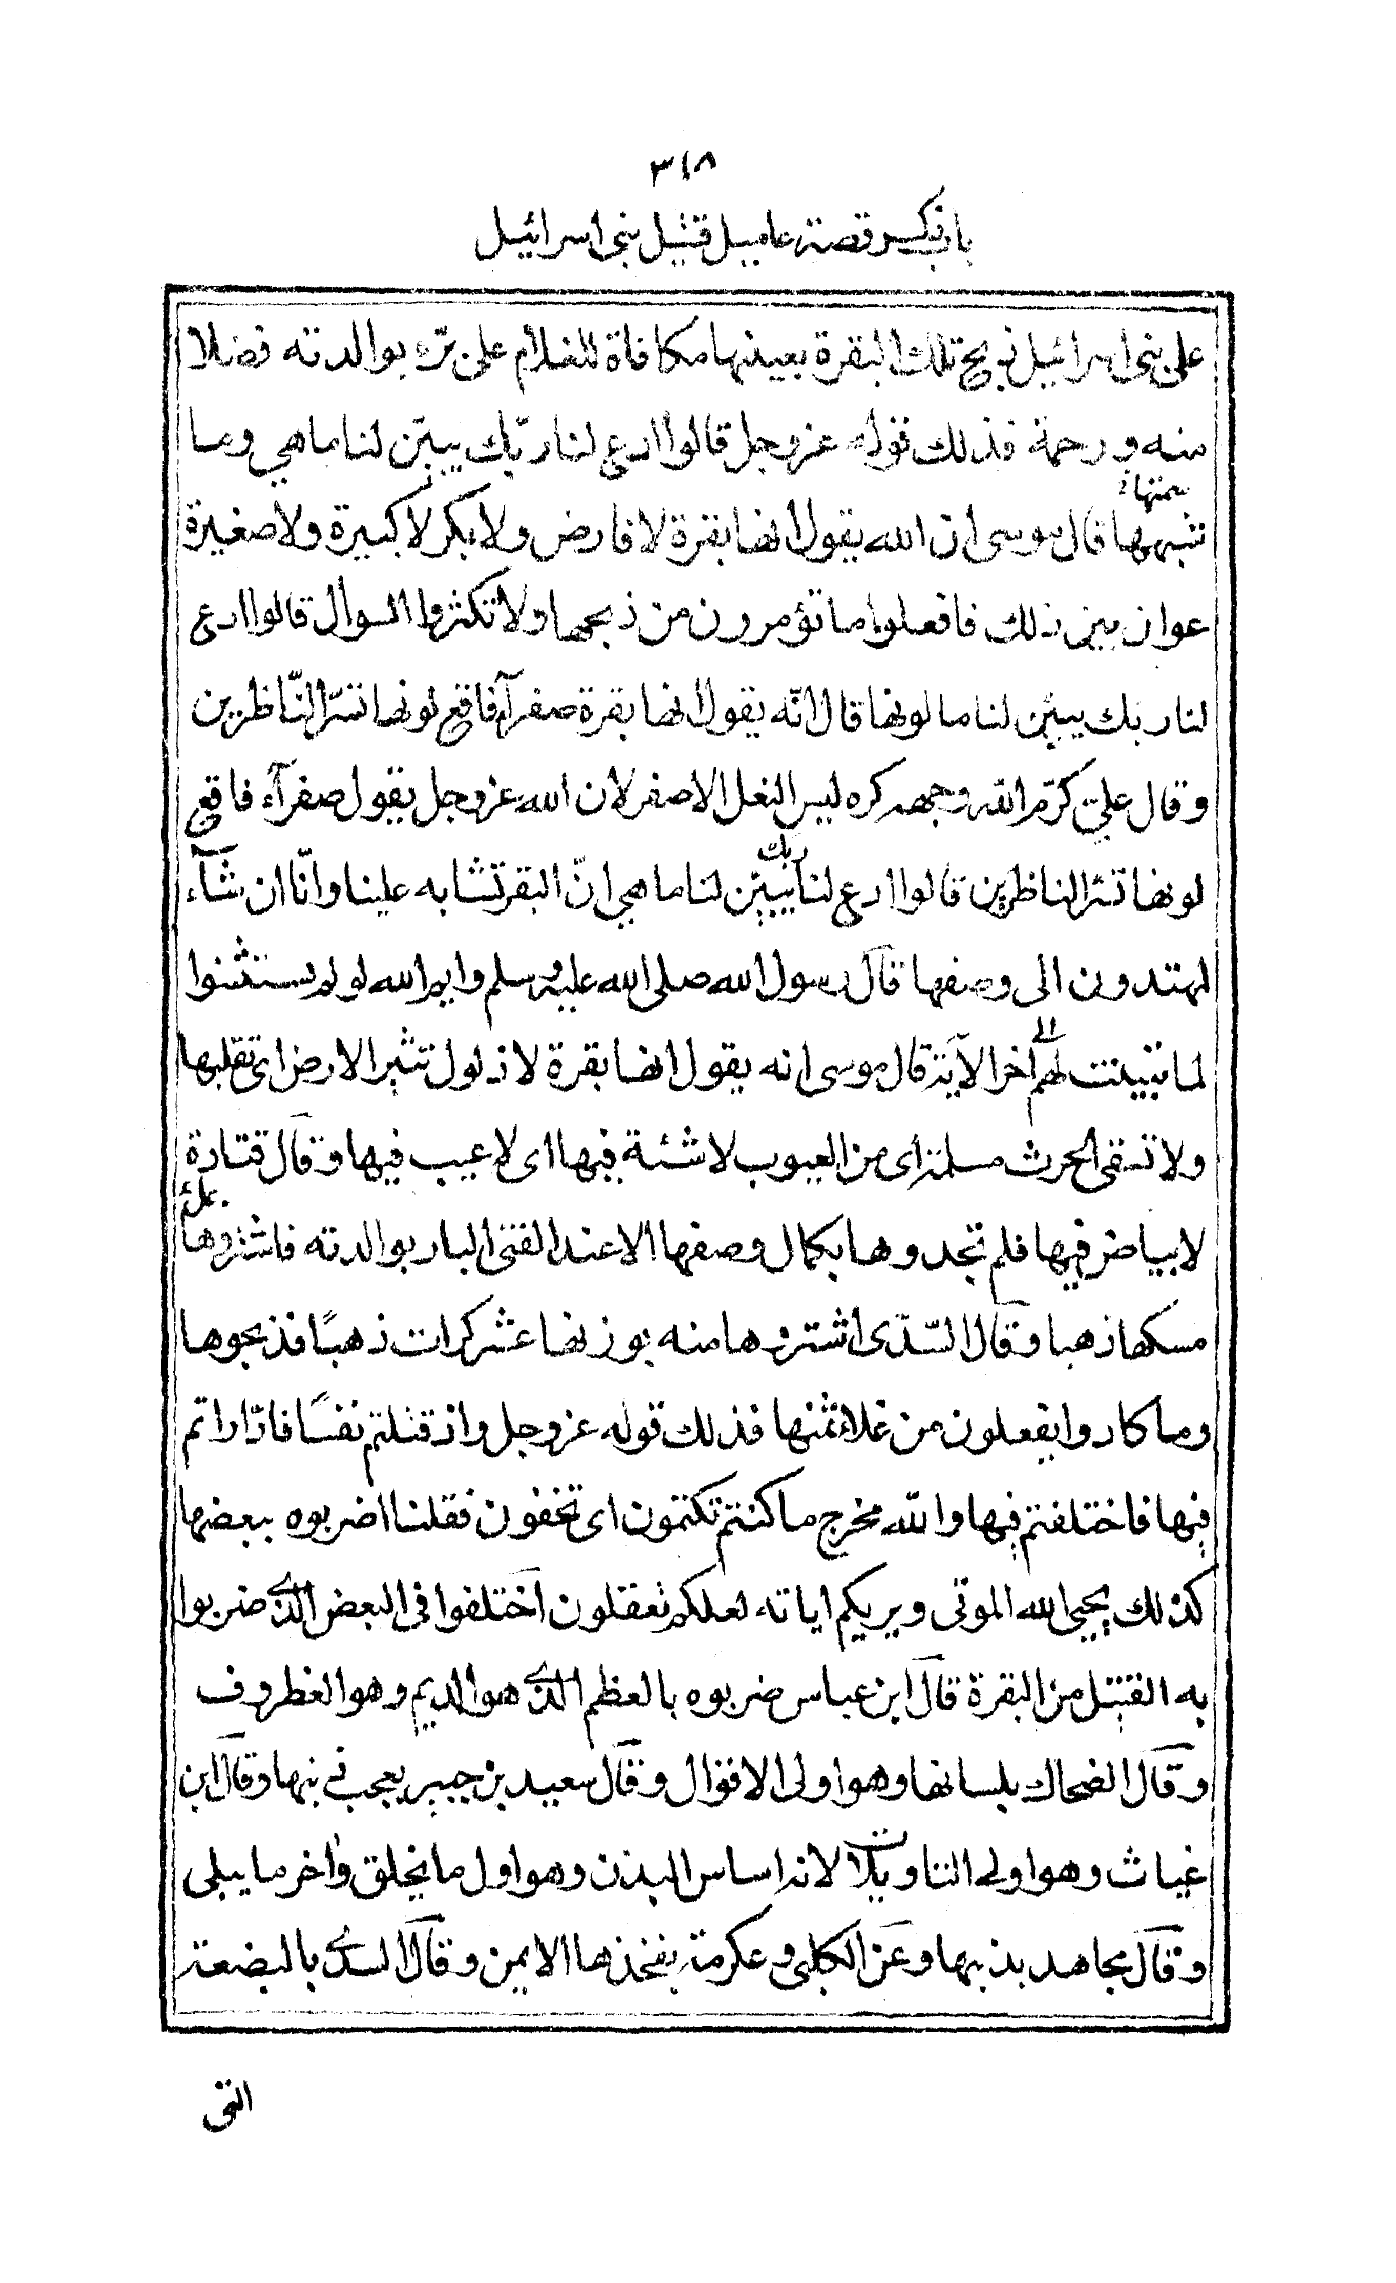 ٣٤٨
باب ذكر قصة عاميل قتيل بني اسرائيل
على بنى اسرائيل ذبح تلك البقرة بعينها مكافاة للغلام على برّه بوالدته فضلا
منه ورحمة فذلك قوله عزوجل قالوا ادع لنا ربّك يبيّن لنا ما هي وما
سمتها
تشبهها قال موسى ان الله يقول انها بقرة لا فارض ولا بكر لا كبيرة ولا صغيرة
عوان بين ذلك فافعلوا ما تؤمرون من ذبحها ولا تكثروا السوال قالوا ادع
لنا ربك يبيّن لنا ما لونها قال انّه يقول انها بقرة صفرآء فاقع لونها تسرّ النّاظرين
وقال عليّ كرّم الله وجهه كره لبس النعل الاصفر لان الله عزوجل يقول صفرآء فاقع
لونها تسّر الناظرين قالوا ادع لنا ربك يبيّن لنا ما هي انّ البقر تشابه علينا وانّا ان شآء
لمهتدون الى وصفها قال رسول الله صلى الله عليه وسلم وايم الله لو لم يستثنوا
لما تبيّنت لهم الى اخر الآية قال موسى انه يقول انها بقرة لا ذلول تثير الارض اى تقلبها
ولا تسقى الحرث مسلمة اى من العيوب لا شئة فيها اى لا عيب فيها وقال قتادة
لا بياض فيها فلم تجدوها بكمال وصفها الا عند الفتى البار بوالدته فاشتروها على
مسكها ذهبا وقال السّدّى اشتروها منه بوزنها عشر كرات ذهبًا فذبحوها
وما كادوا يفعلون من غلاء ثمنها فذلك قوله عزوجل واذ قتلتم نفسًا فادّاراتم
فيها فاختلفتم فيها والله مخرج ما كنتم تكتمون اى تخفون فقلنا اضربوه ببعضها
كذلك يحيى الله الموتى ويريكم اياته لعلكم تعقلون اختلفوا فى البعض الذى ضربوا
به القتيل من البقرة قال ابن عباس ضربوه بالعظم الذى هو الديم وهو الغطروف
وقال الضحاك بلسانها وهو اولى الاقوال وقال سعيد بن جبير بعجب ذنبها وقال ابن
غياث وهو اولى التاويلات لانه اساس البدن وهو اول ما يخلق واخر ما يبلى
وقال مجاهد بذنبها وعن الكلبى وعكرمة بفخذها الايمن وقال السدى بالبضعة
التى